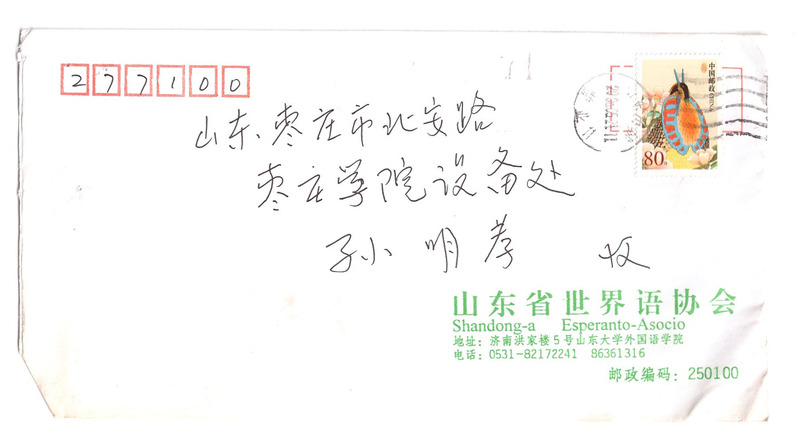 277100
中国邮政 CHINA
80分
山东枣庄市北安路
枣庄学院设备处
孙小明孝 收
山东省世界语协会
Shandong-a Esperanto-Asocio
地址：济南洪家楼5号山东大学外国语学院
电话：0531-82172241 86361316
邮政编码：250100